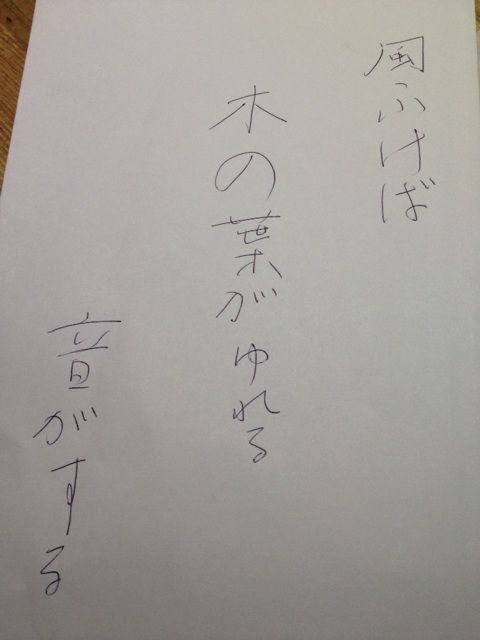 風ふけば
木の葉がゆれる
音がする